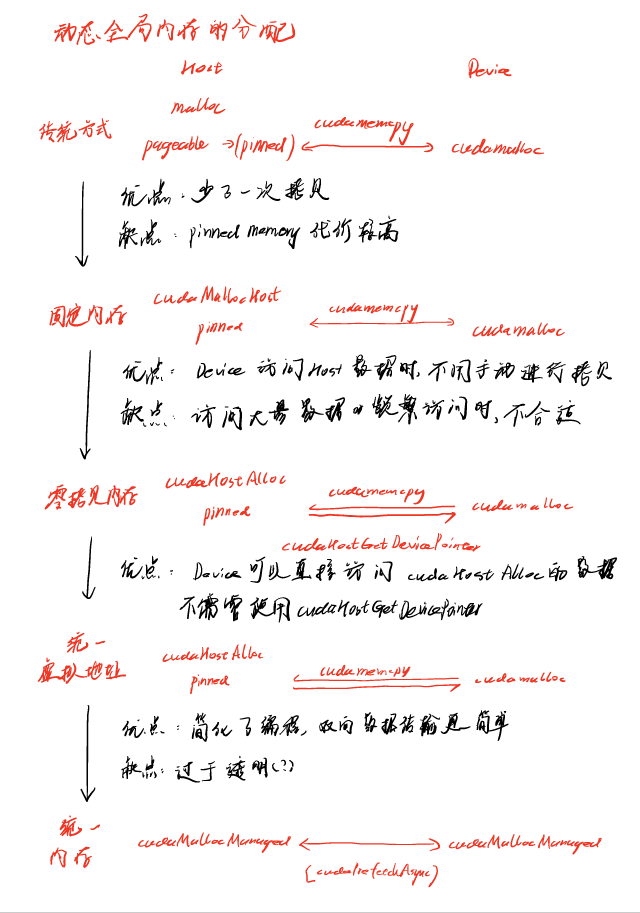 动态全局内存的分配
Host Device
malloc
传统方式 pageable →(pinned) cudamemcpy cudamalloc
优点：少了一次拷贝
缺点：pinned memory 代价较高
固定内存 cudaMallocHost
pinned cudamemcpy cudamalloc
优点：Device 访问Host数据时,不用手动进行拷贝
缺点：访问大量数据or频繁访问时,不合适
零拷贝内存 cudaHostAlloc
pinned cudamemcpy cudamalloc
cudaHostGetDevicePointer
优点：Device可以直接访问 cudaHostAlloc的数据
不需要使用cudaHostGetDevicePointer
统一
虚拟地址 cudaHostAlloc
pinned cudamemcpy cudamalloc
优点：简化了编程,双向数据传输更简单
缺点:过于透明(?)
统一
内存 cudaMallocManaged cudaMallocManaged
(cudaPrefetchAsync)